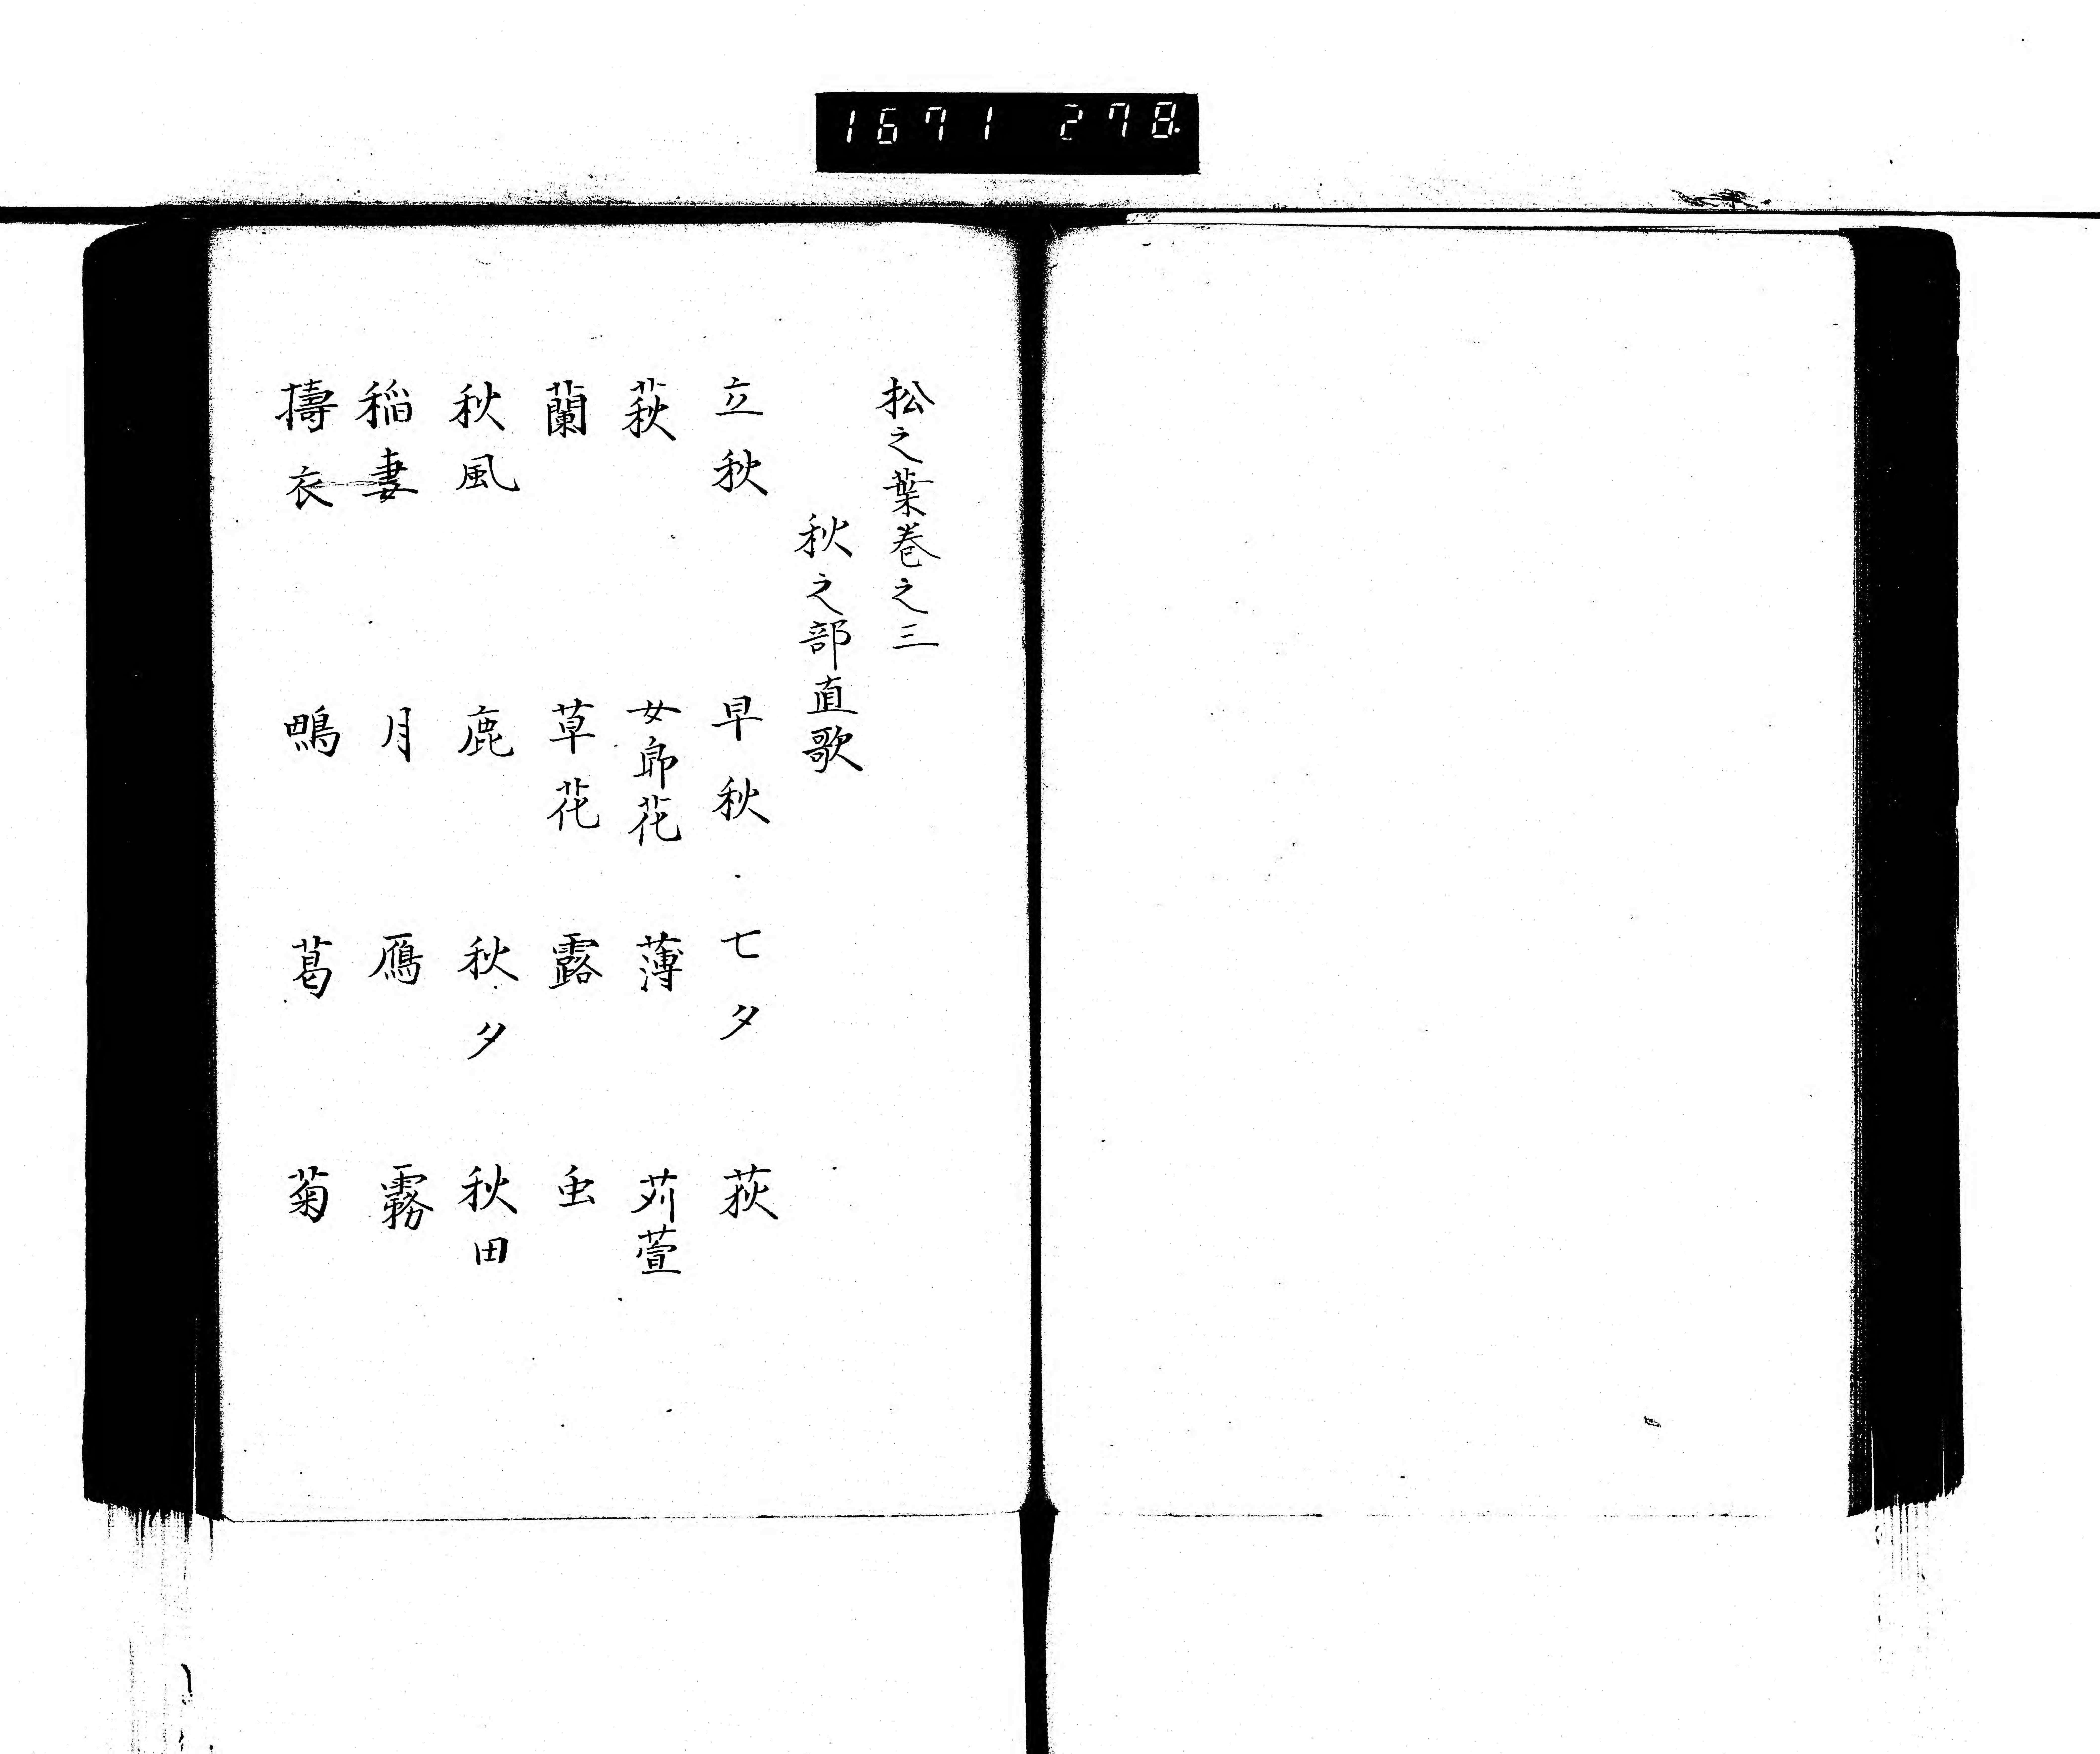 1671 278.
松之葉巻之三
秋之部直歌
立秋 早秋 七夕 荻
萩 女郎花 薄 苅萱
蘭 草花 露 虫
秋風 鹿 秋夕 秋田
稲妻 月 鴈 霧
擣衣 鴫 葛 菊